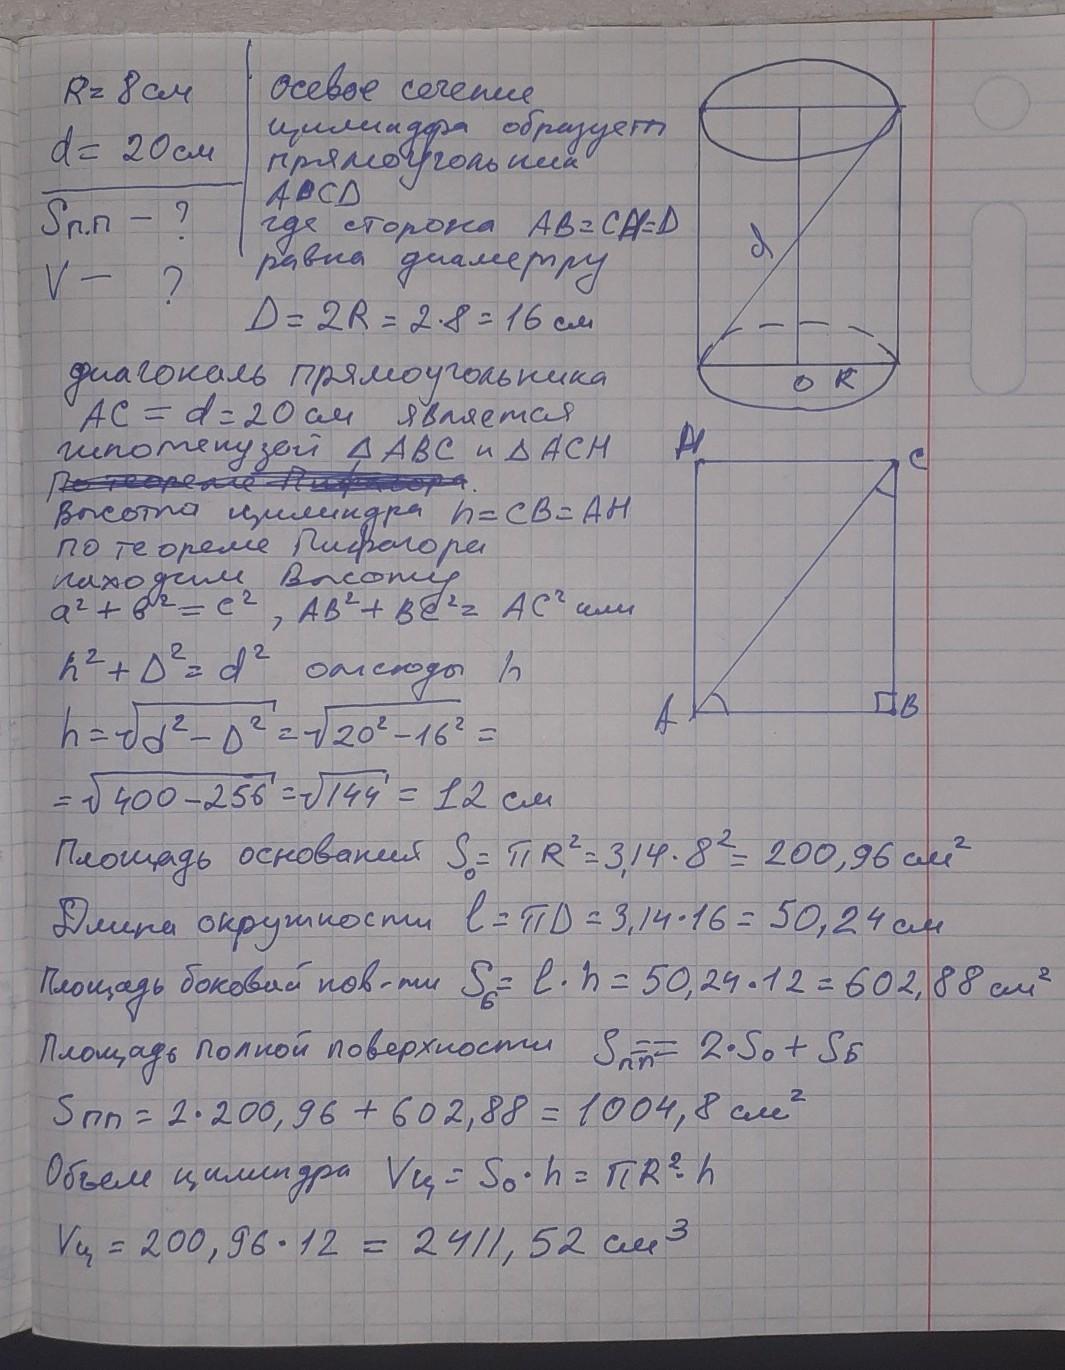 R = 8 см
d = 20 см
Sп.п – ?
V – ?
осевое сечение
цилиндра образует
прямоугольник
ABCD
где сторона AB=CH=D
равна диаметру
D = 2R = 2·8 = 16 см
диагональ прямоугольника
AC = d = 20 см является
гипотенузой ΔABC и ΔACH
По теореме Пифагора.
Высота цилиндра h=CB=AH
по теореме Пифагора
находим высоту
a² + b² = c², AB² + BC² = AC² или
h² + D² = d² отсюды h
h = √d² – D² = √20² – 16² =
= √400 – 256 = √144 = 12 см
Площадь основания S₀ = πR² = 3,14·8² = 200,96 см²
Длина окружности l = πD = 3,14·16 = 50,24 см
Площадь боковой пов-ти Sб = l·h = 50,24·12 = 602,88 см²
Площадь полной поверхности Sпп == 2·S₀ + Sб
Sпп = 2·200,96 + 602,88 = 1004,8 см²
Объем цилиндра Vц = S₀·h = πR²·h
Vц = 200,96·12 = 2411,52 см³
d
O R
H C
A B